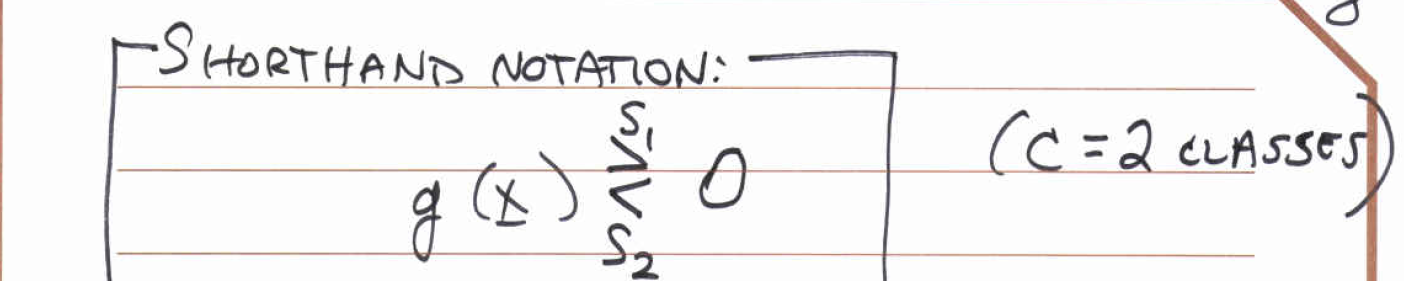 SHORTHAND NOTATION:
g(x) S₁ > < S₂ 0 (C = 2 CLASSES)